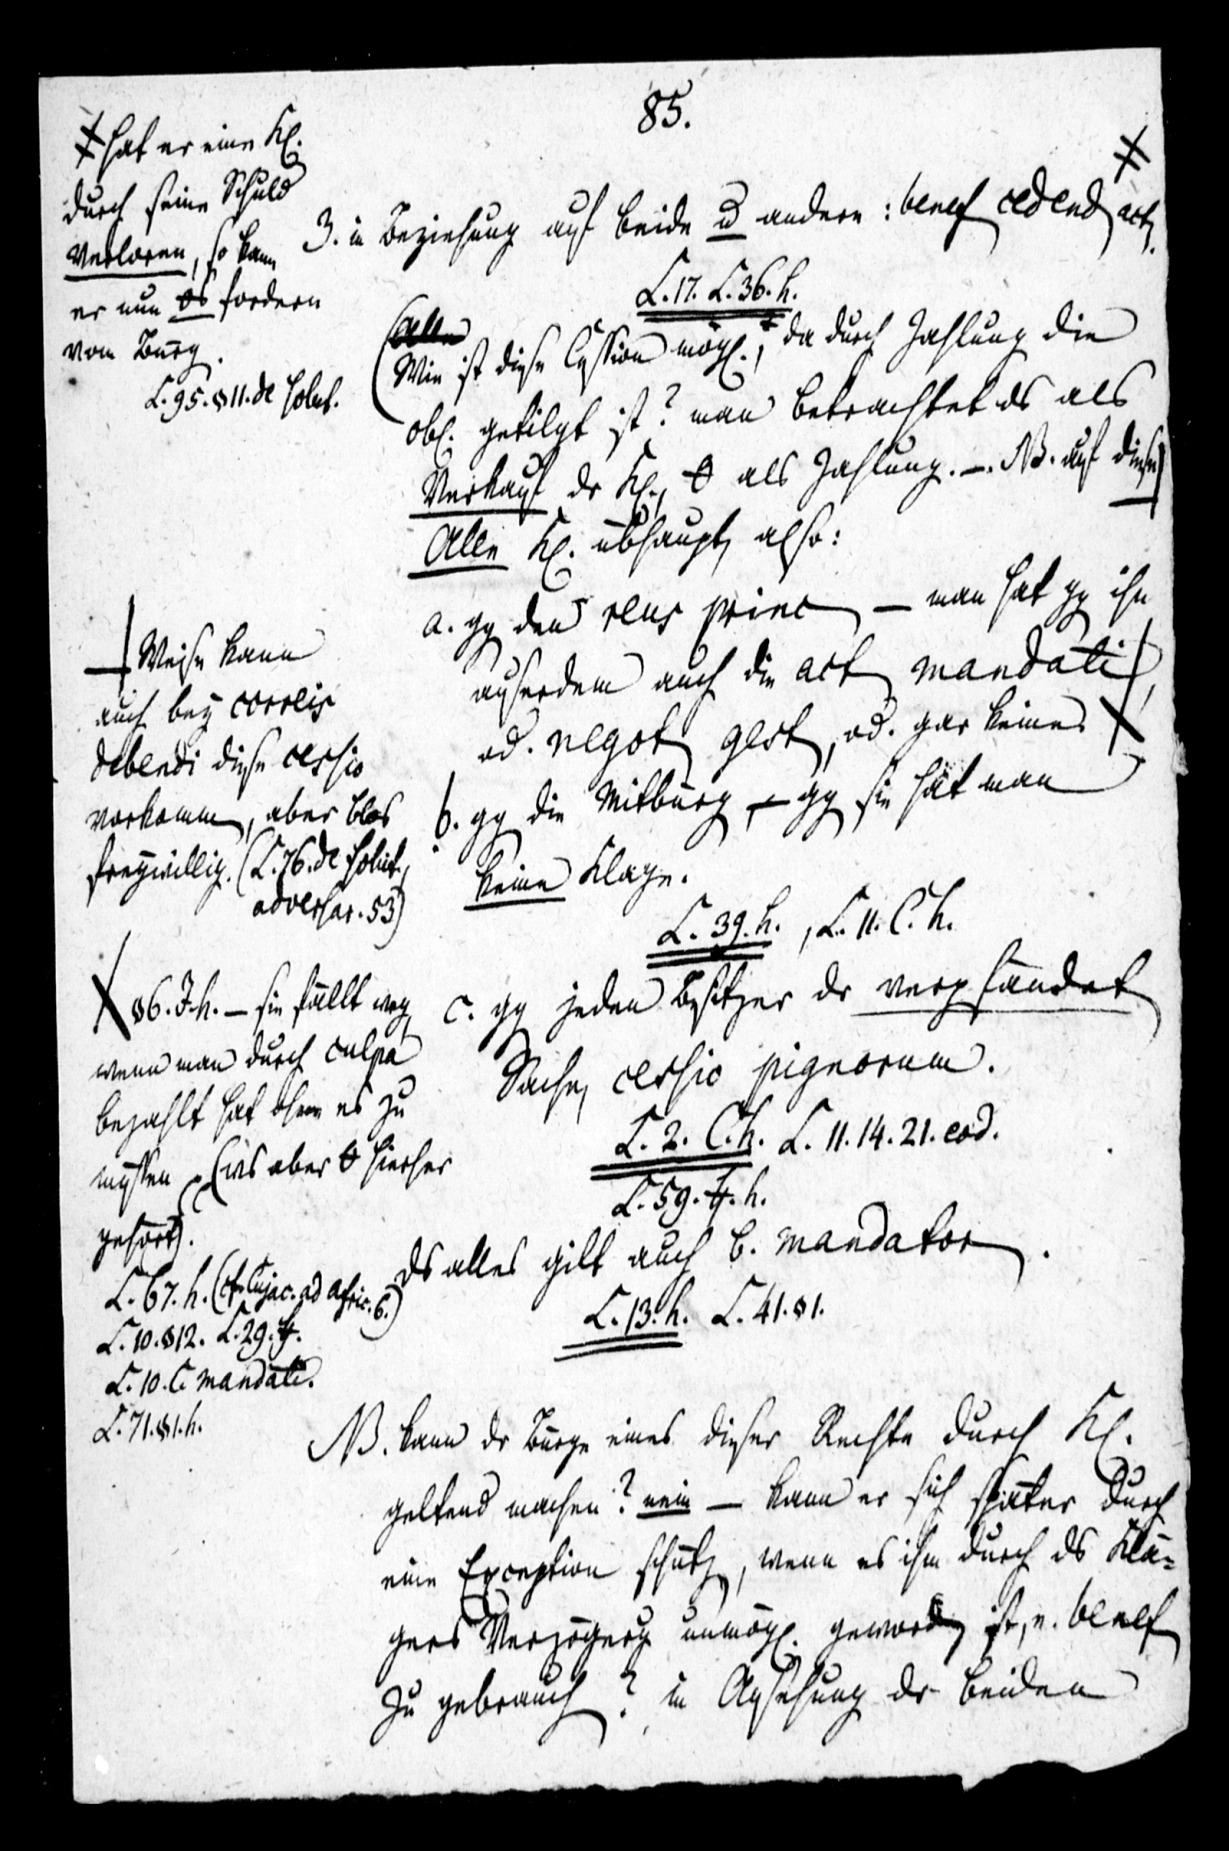 85.
3. in Beziehung auf beide u andere: benef cedend act.
L. 17. L. 36. h.
Wie ist diese Cession mögl., da durch Zahlung die
obl. getilgt ist? man betrachtet ds als
Verkauf dr Kl., als Zahlung. —. NB. auf diese
Alle Kl. übhaupt, also:
a. gg den reus princ — man hat gg ihn
außerdem auch die act mandati
od. negot gest, od. gar keine
b. gg die Mitbürg — gg sie hat man
keine Klage.
L. 39. h., L. 11. C. h.
c. gg jeden Besitzer dr verpfändet
Sache, cessio pignorum.
L. 2. C. h. L. 11. 14. 21. eod.
L. 59. h.
ds alles gilt auch b. mandator.
L. 13. h. L. 41. §1.
NB. kann dr Bürge eines dieser Rechte durch Kl.
geltend machen? nein — kann er sich später durch
eine Exception schütz, wenn es ihm durch ds Klä=
gers Verzögerg unmögl. geword ist, s. benef
zu gebrauch? in Ansehung dr beiden
hat er eine Kl.
durch seine Schuld
verloren, so kann
er nun fordern
vom Bürg.
L. 95. §11. de solut.
Weise kann
auch bey correis
debendi diese cessio
vorkomm, aber blos
freywillig. (L. 76. de solut.,
adversar. 53)
§6. J. h. — sie fällt weg
wenn man durch culpa
bezahlt hat ohne es zu
müssen (ws aber hierher
gehört).
L. 67. h. (cf. Cujac. ad Afric. 6.)
L. 10. §12. L. 29.
L. 10. C. mandati.
L. 71. §1. h.